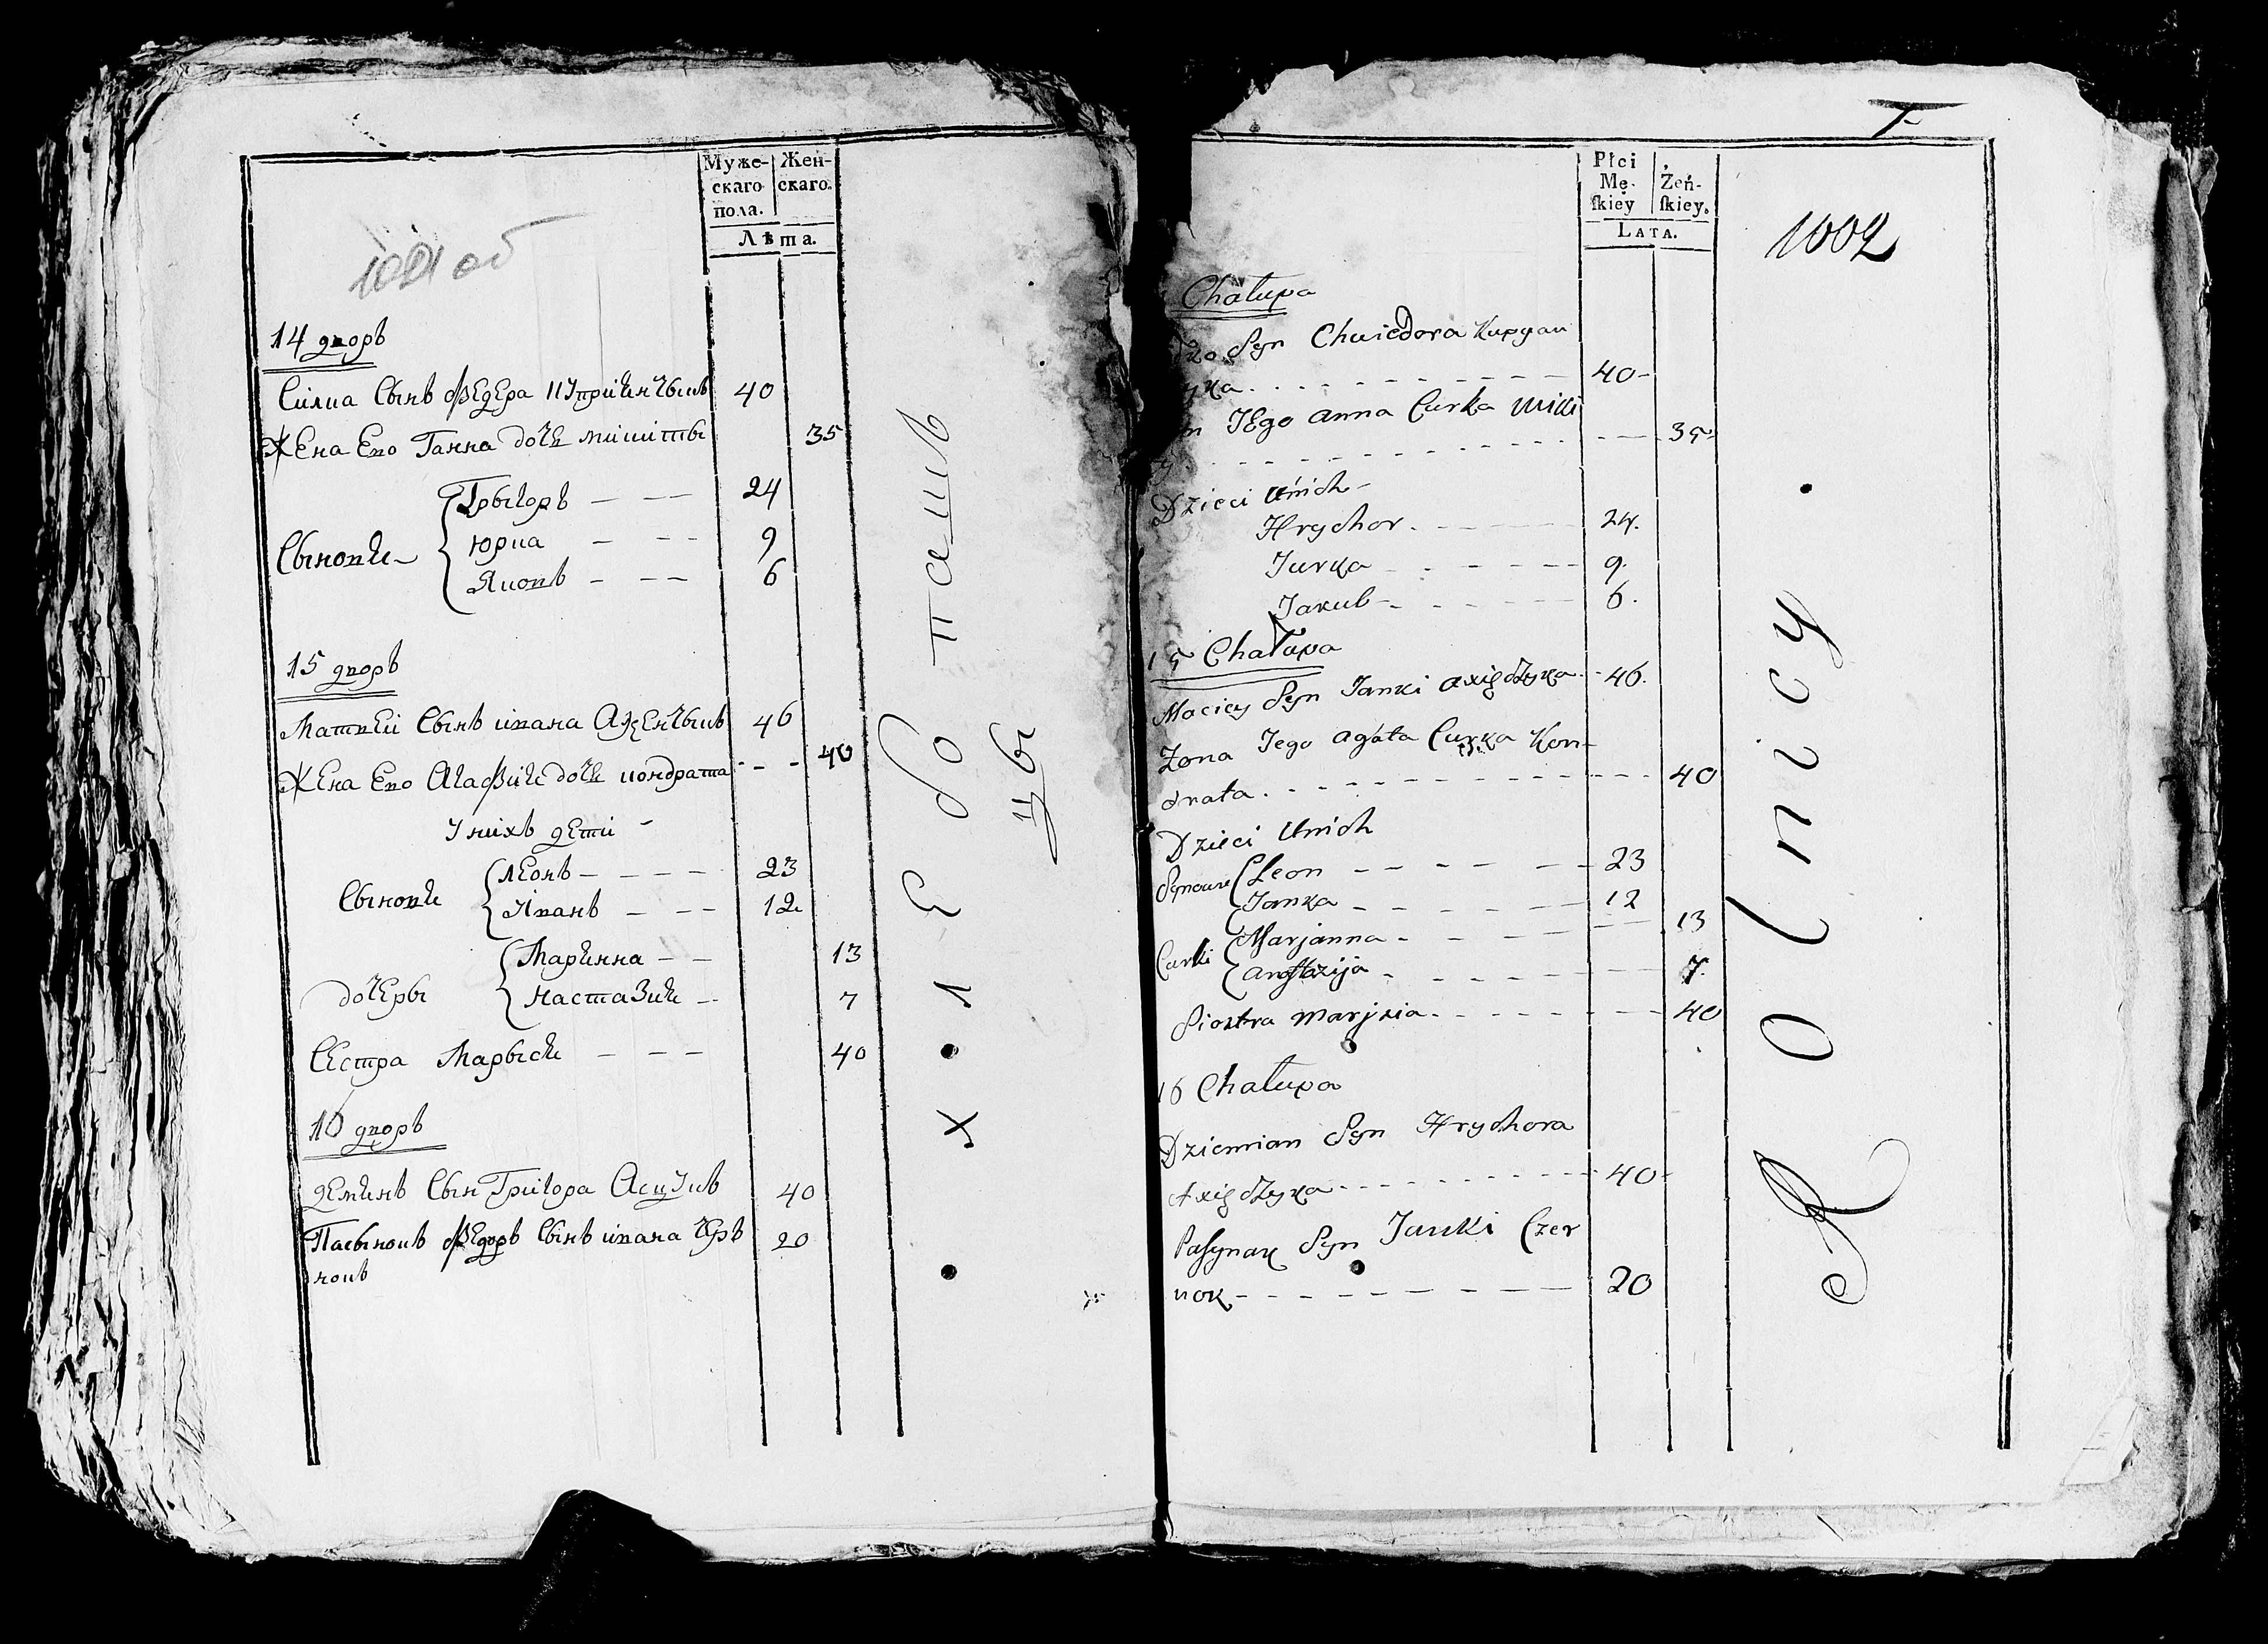 Муже-
скаго
пола.
Жен-
скаго.
Лѣта.
об
14 дворъ
Сымонъ сынъ Федера 40
Жена Ево Ганна доче микиты 35
Сыновя
Грыгоръ — — — 24
Юрка — — — 9
Яковъ — — — 6
15 дворъ
Матвей Сынъ ивана 46
Жена Ево Агафия доче кондрата - - - 40
У нихъ дети -
Сыновя
Леонъ — — — — 23
Иванъ — — — 12
дочеры
Марянна — — 13
Настазия — 7
Сестра Марыся — — — 40
16 дворъ
Демянъ Сын Григора 40
Пасынокъ Федоръ Сынъ ивана Чер 20
нокъ
Хлебопаш
цы
Płci
Mę-
ſkiey
Żeń-
ſkiey.
LATA.
1002
Chałupa
Syn Chwiedora
40
Jego anna Curka Miki
35
Dzieci Unich -
Hrychor. 24.
Jurka 9.
Jakub 6.
15 Chałupa
Maciey Syn Janki 46.
Żona Jego agata Curka Kon-
drata. 40
Dzieci Unich
Synowie
Leon 23
Janka 12
Curki
Marjanna 13
7.
Siostra marjsia. 40
16 Chałupa
Dziemian Syn Hrychora
40
Pasynak Syn Janki Czer
nok 20
Rolnicy